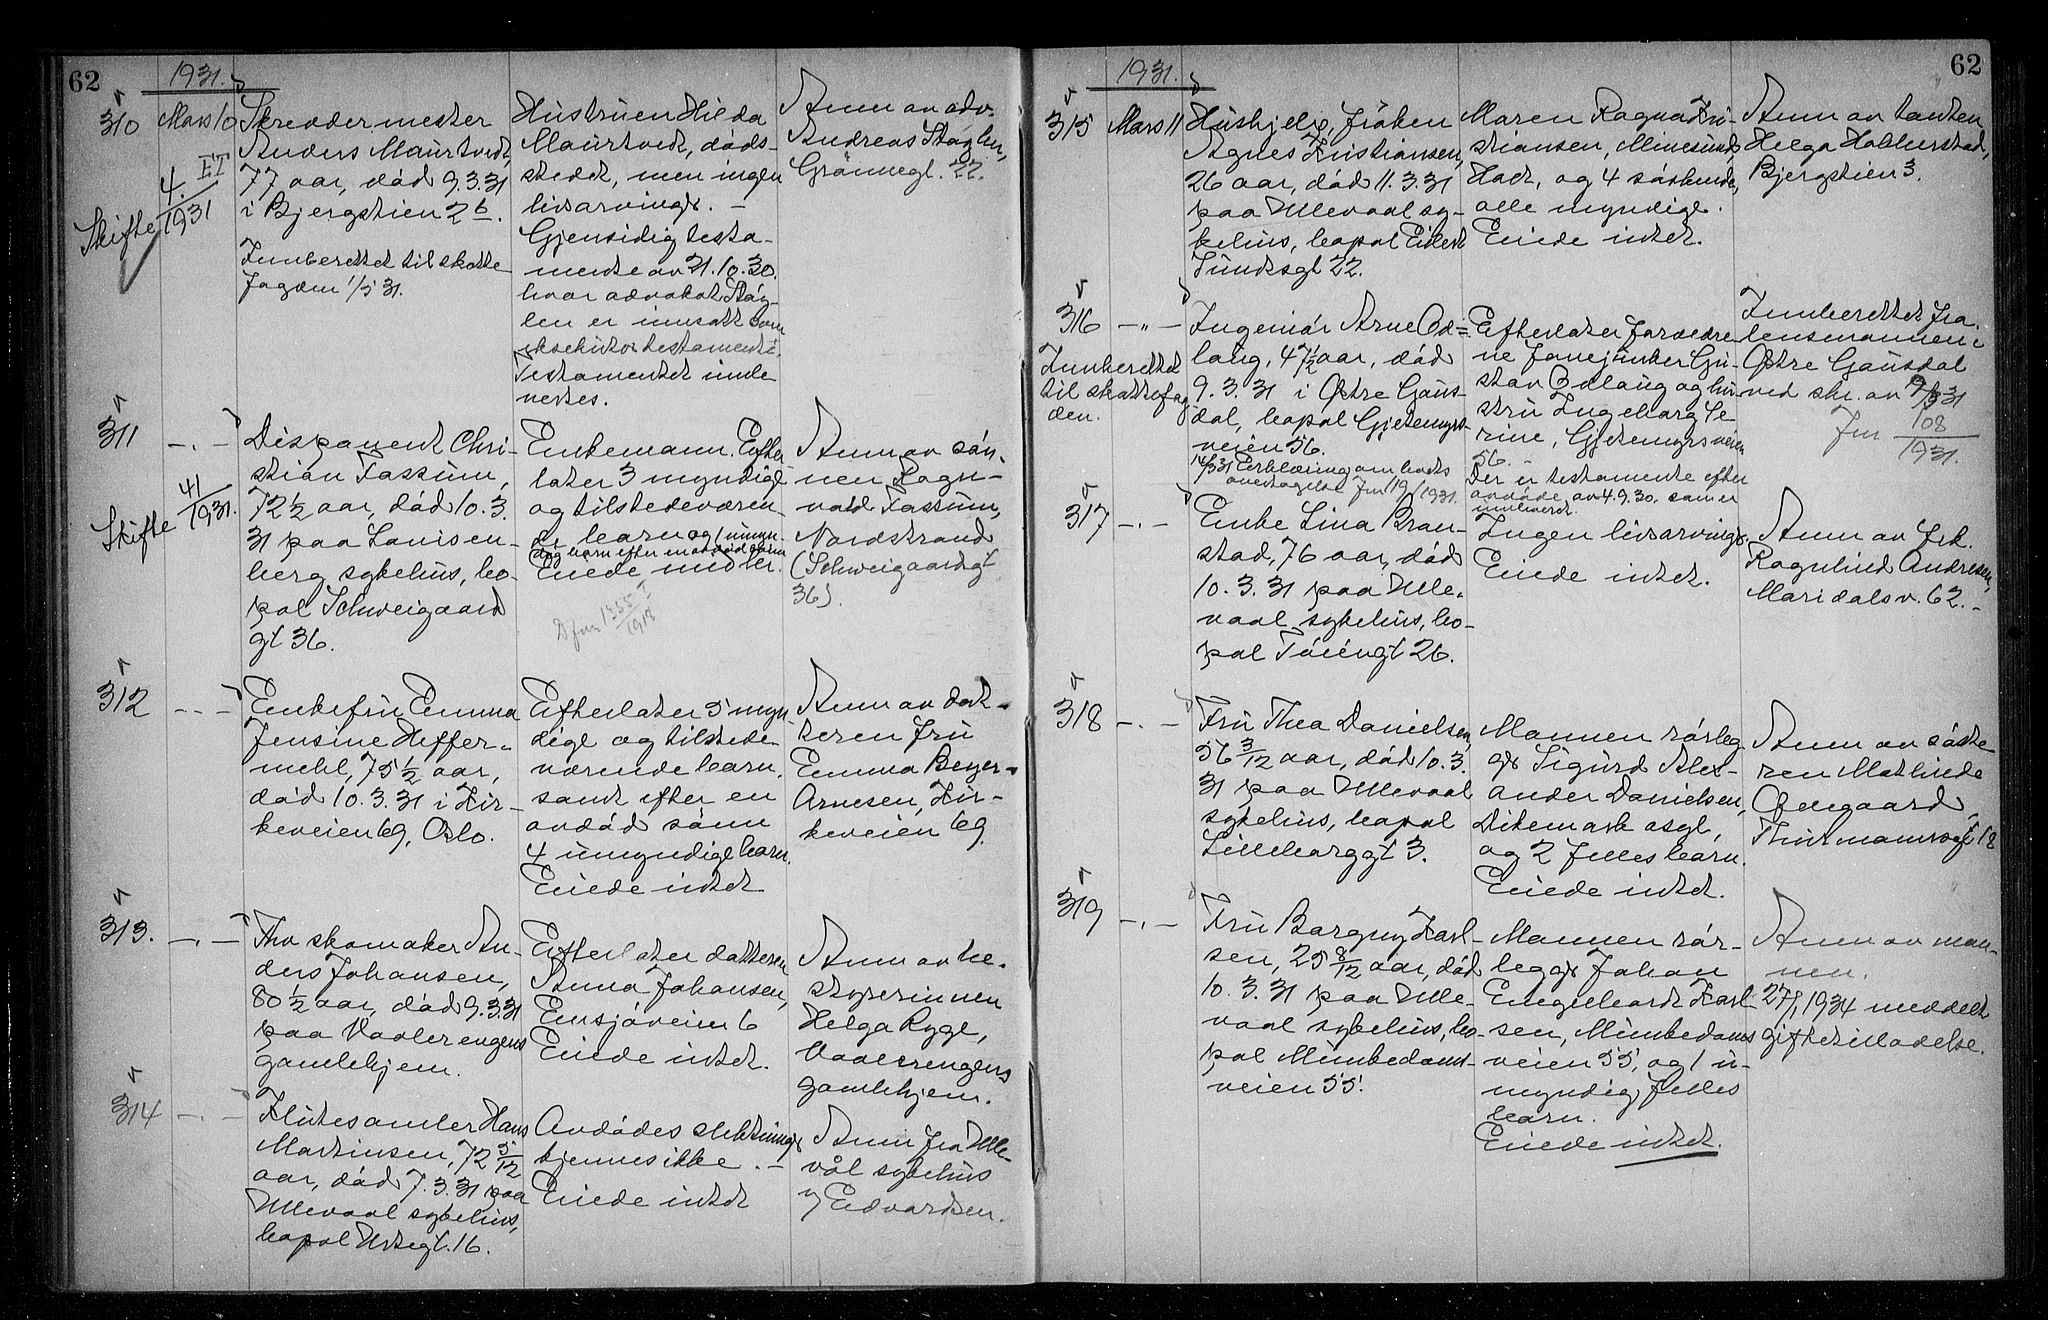 62
1931.
310
Mars 10
Skreddermester
Anders Maurtvedt,
77 aar, død 9.3.31
i Bjergstien 2 b.
Innberettet til skatte-
fogden 1/5 31.
Skifte 4/1931 ET
Hustruen Hilda
Maurtvedt, døds-
stedet, men ingen
livsarvinger. -
Gjensidig testa-
mente av 21.10.30.
hvor advokat Støy-
len er innsatt som
eksekutor testamenti.
Testamentet inde
vertes.
Anm av adv.
Andreas Støylen,
Grønnegt. 22.
311
- " -
Skifte 41/1931.
Disponent Chri-
stian Fossum,
72 1/2 aar, død 10.3.
31 paa Lovisen-
berg sykehus, bo-
pæl Schweigaard
gt 36.
Enkemann. Efter
later 3 myndige
og tilstedeværen-
de barn og 1 umyn-
dig barn efter en avdød sønn
Eiede midler.
1918
Anm av søn-
nen Ragn-
vald Fossum,
Nordstrand
(Schweigaardsgt
36).
312
- " -
Enkefru Emma
Jensine Heffer-
mehl, 75 1/2 aar,
død 10.3.31 i Kir-
keveien 69, Oslo.
Efterlater 5 myn
dige og tilstede
værende barn,
samt efter en
avdød sønn
4 umyndige barn.
Eiede intet
Anm av dat-
teren fru
Emma Beyer-
Arnesen, Kir-
keveien 69
313.
- " -
Fhv skomaker An-
ders Johansen,
80 1/2 aar, død 9.3.31
paa Vaalerengens
gamlehjem.
Efterlater datteren
Anna Johansen,
Ensjøveien 6
Eiede intet.
Anm av be-
styrerinnen
Helga Rygg,
Vaalerengens
gamlehjem.
314
- " -
Klutesamler Hans
Martinsen, 72 5/12
aar, død 7.3.31 paa
Ullevaal sykehus,
bopæl Urtegt. 16.
Avdødes slektninger
kjennes ikke. -
Eiede intet
Anm fra Ulle-
vål sykehus
v/ Edvardsen.
62
1931.
315
Mars 11
Hushjelp, frøken
Agnes Kristiansen,
26 aar, død 11.3.31
paa Ullevaal sy-
kehus, bopæl Eilert
Sundtsgt 22.
Maren Ragna Kri-
stiansen, Minesund,
og 4 søskende,
alle myndige.
Eiede intet.
Anm av tanten
Helga Hobberstad,
Bjergstien 3.
316
- " -
Innberettet
til skattefog
den.
Ingeniør Arne Od-
laug, 47 1/2 aar, død
9.3.31 i Østre Gaus-
dal, bopæl Gjetemyrs-
veien 56.
14/3 31 Erklæring om bods
overtagelse Jnr 119/1931.
Efterlater foreldre
ne fanejunker Gu-
stav Odlaug og hu-
stru Ingeborg Se-
rine, Gjetemyrsveien
56. -
Der er testamente efter
avdøde av 4.9.30. som er
innlevert.
Innberettet fra
lensmannen i
Østre Gausdal
ved skr. av 9/3 31
Jnr 108/1931.
317
- " -
Enke Lina Bran-
stad, 76 aar, død
10.3.31 paa Ulle-
vaal sykehus, bo-
pæl Tøiengt 26.
Ingen livsarvinger.
Eiede intet.
Anm av frk.
Ragnhild Andresen,
Maridalsv. 62. -
318
- " -
Fru Thea Danielsen,
56 3/12 aar, død 10.3.
31 paa Ullevaal
sykehus, bopæl
Lilleborggt 3.
Mannen rørleg-
ger Sigurd Alex-
ander Danielsen,
Dikemark asyl,
og 2 felles barn.
Eiede intet.
Anm av søste
ren Mathilde
Ødegaard,
Thurmannsgt 18
319
- " -
Fru Borgny Karl-
sen, 25 8/12 aar, død
10.3.31 paa Ulle-
vaal sykehus, bo-
pæl Munkedams-
veien 55.
Mannen rør-
legger Johan
Engelhardt Karl-
sen, Munkedams
veien 55, og 1 u-
myndig felles
barn.
Eiede intet.
Anm av man-
nen.
27/1 1934 meddelt
giftetilladelse.